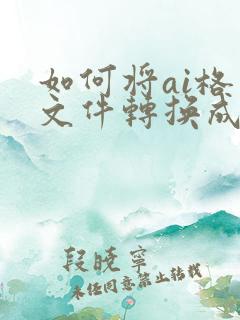 如何将ai格
文件轉换成
段晓寧
未经同意禁止转载